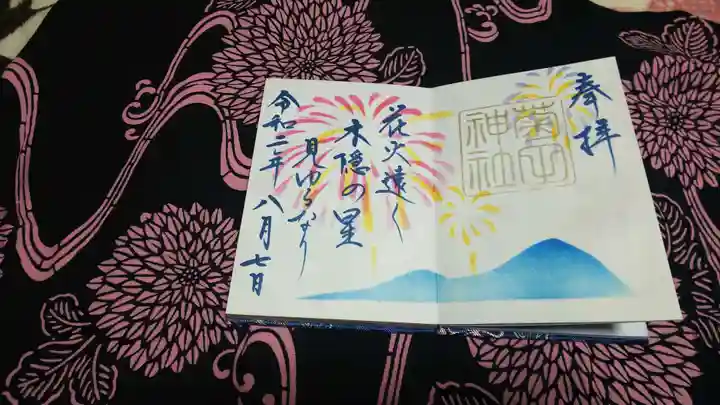 奉拝
神社
花火遠く
木隠の里
見ゆるなり
令和二年 八月七日